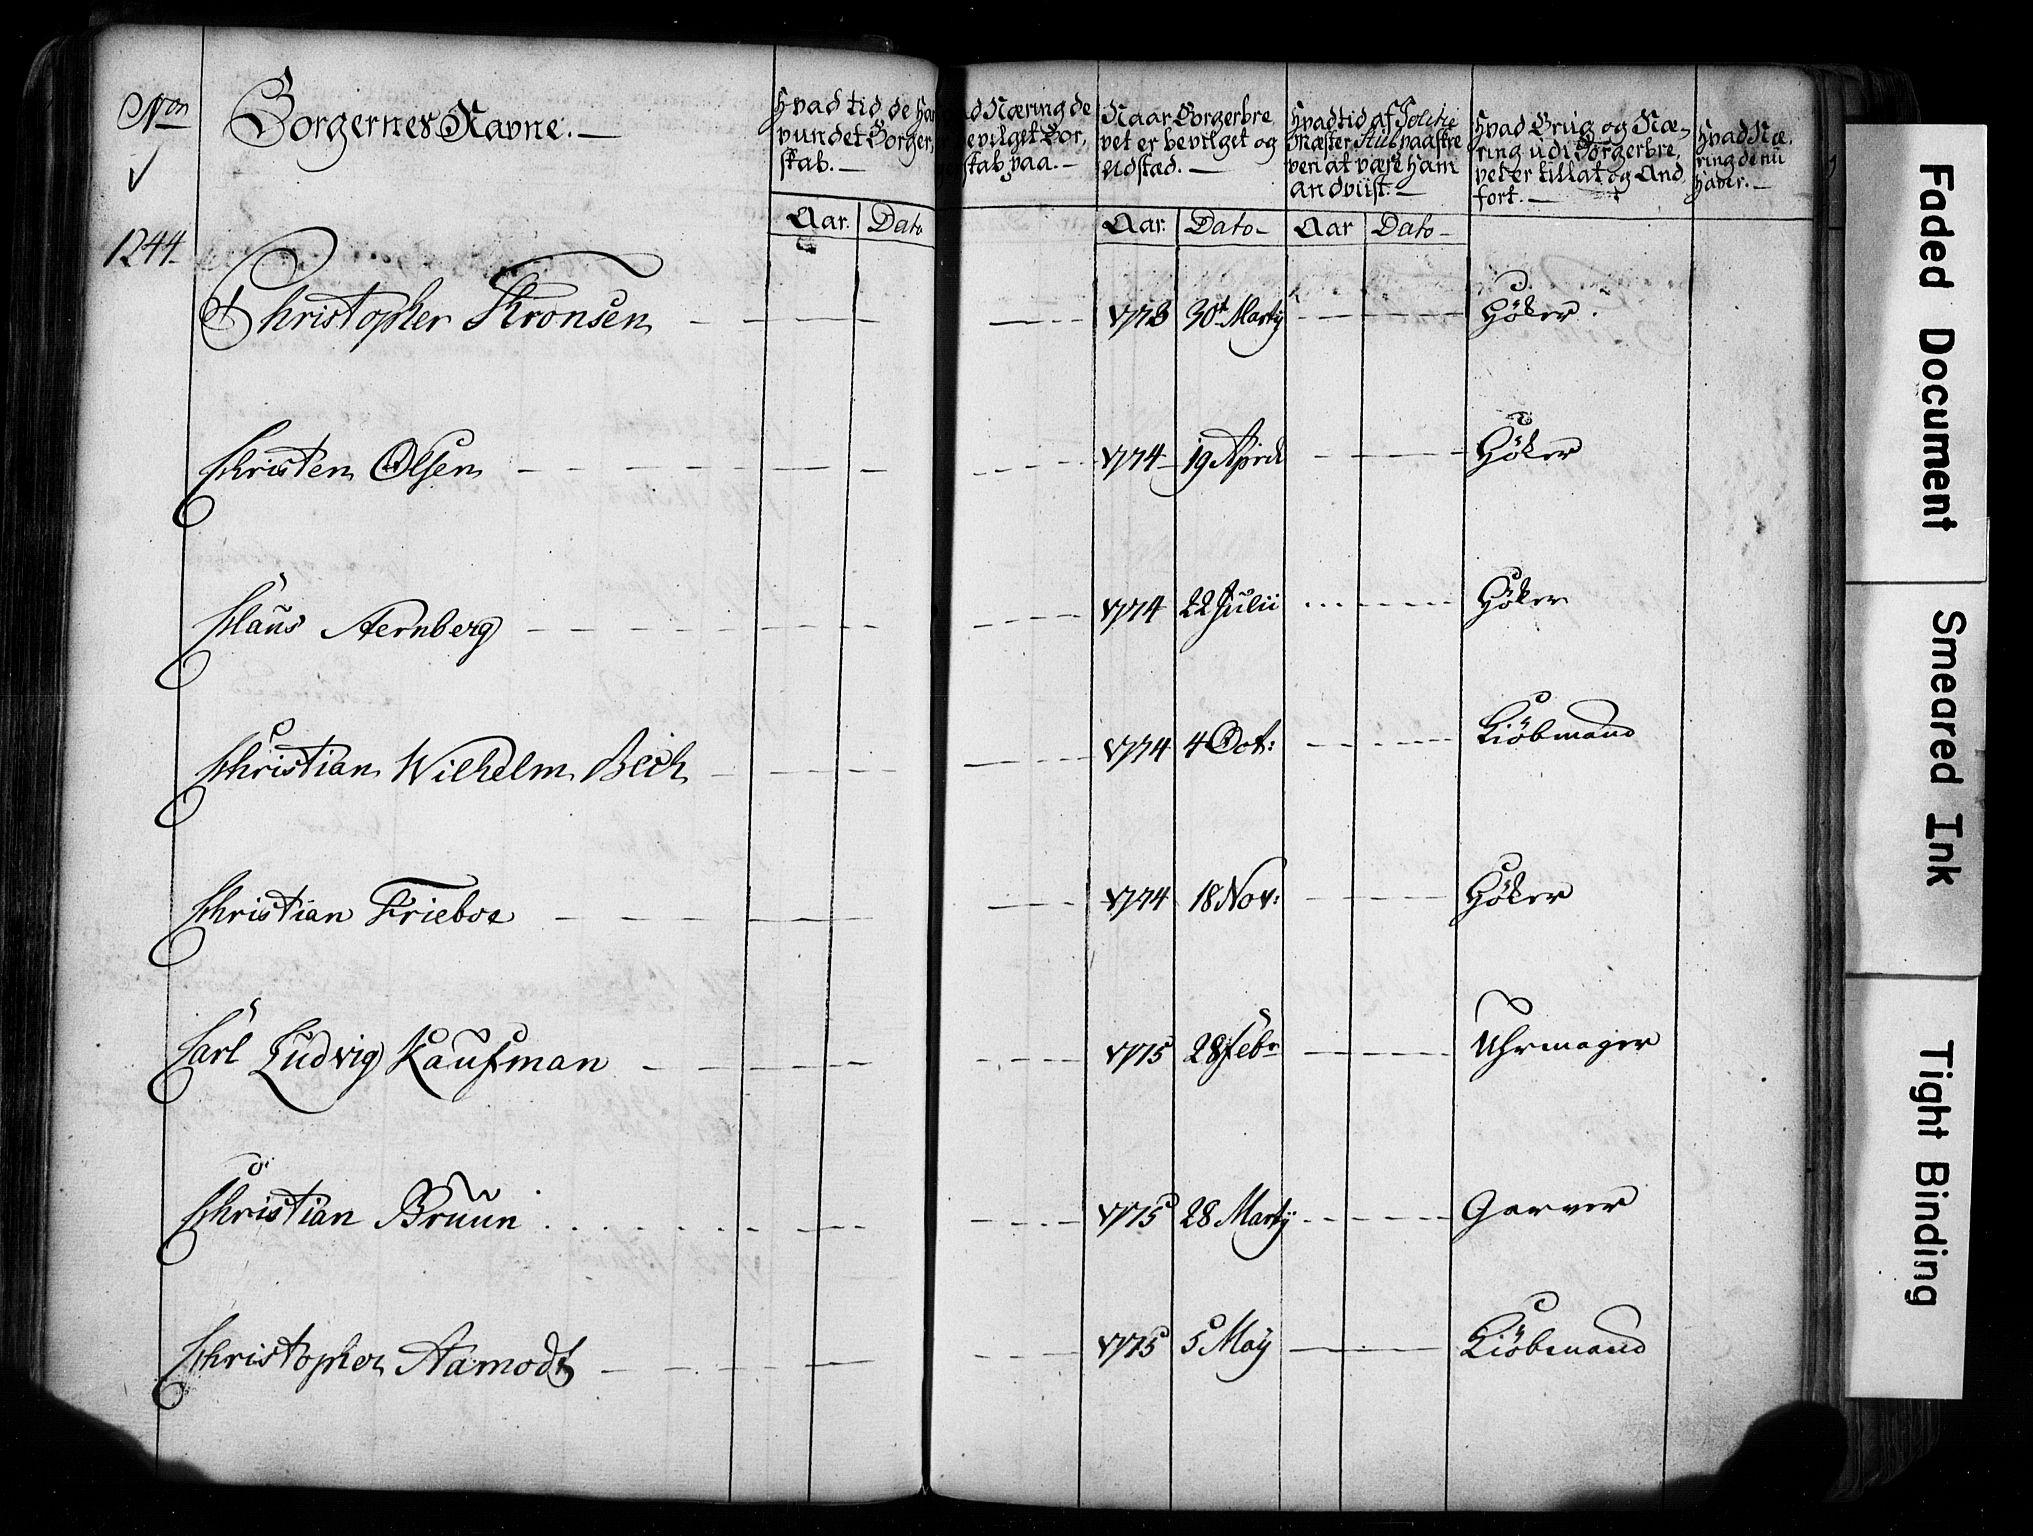 Non
Borgernes Navne.
Hvad tid de har
vundet Borger,
skab.
Aar. Dato
ad Næring de
bevilget Bor,
skab paa.
Naar Borgerbre
vet er bevilget og
Udstæd.
Aar. Dato
Hvad tid af Politie
Mæster
veri at være ham
andviist.
Aar Dato
Hvad Brug og Næ,
ring udi Borgerbre,
vet er tillat og And
fört.
Hvad Næ,
ring de nu
haver.
1244.
Christopher Kronsen 1773 30t Martÿ Höker.
Christen Olsen 1774 19 Aprill Höker
Claus Aernberg 1774 22 Julii Höker
Christian Wilhelm Bech 1774 4 Oct: Kiöbmand
Christian Frieboe 1774 18 Nov: Höker
Carl Ludvig Kaufman 1775 28 Febr Uhrmager
Christian Bruun 1775 28 Martÿ Garver
Christopher Aamodt 1775 5 Maÿ Kiöbmand
Faded Document
Smeared Ink
Tight Binding